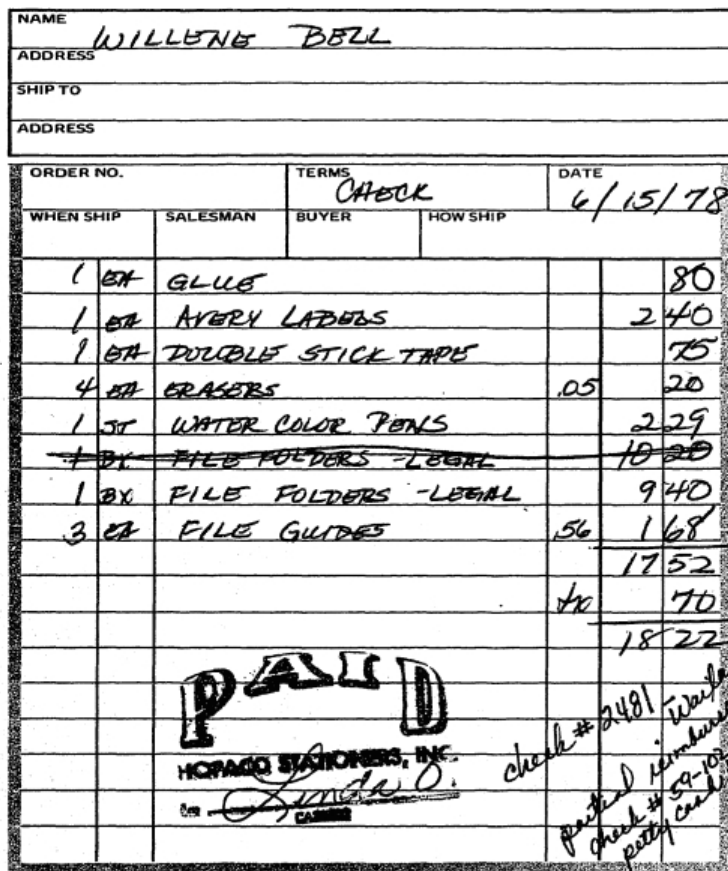 NAME WILLENE BELL
ADDRESS
SHIP TO
ADDRESS
ORDER NO. TERMS CHECK DATE 6/15/78
WHEN SHIP SALESMAN BUYER HOW SHIP
1 EA GLUE 80
1 EA AVERY LABELS 2 40
1 EA DOUBLE STICK TAPE 75
4 EA ERASERS .05 20
1 ST WATER COLOR PENS 2 29
1 BX FILE FOLDERS -LEGAL 10 20
1 BX FILE FOLDERS -LEGAL 9 40
3 EA FILE GUIDES .56 1 68
17 52
tx 70
18 22
PAID
HOPACO STATIONERS, INC.
Linda O.
CASHIER
check # 2481
partial
check # 59-102
petty cash